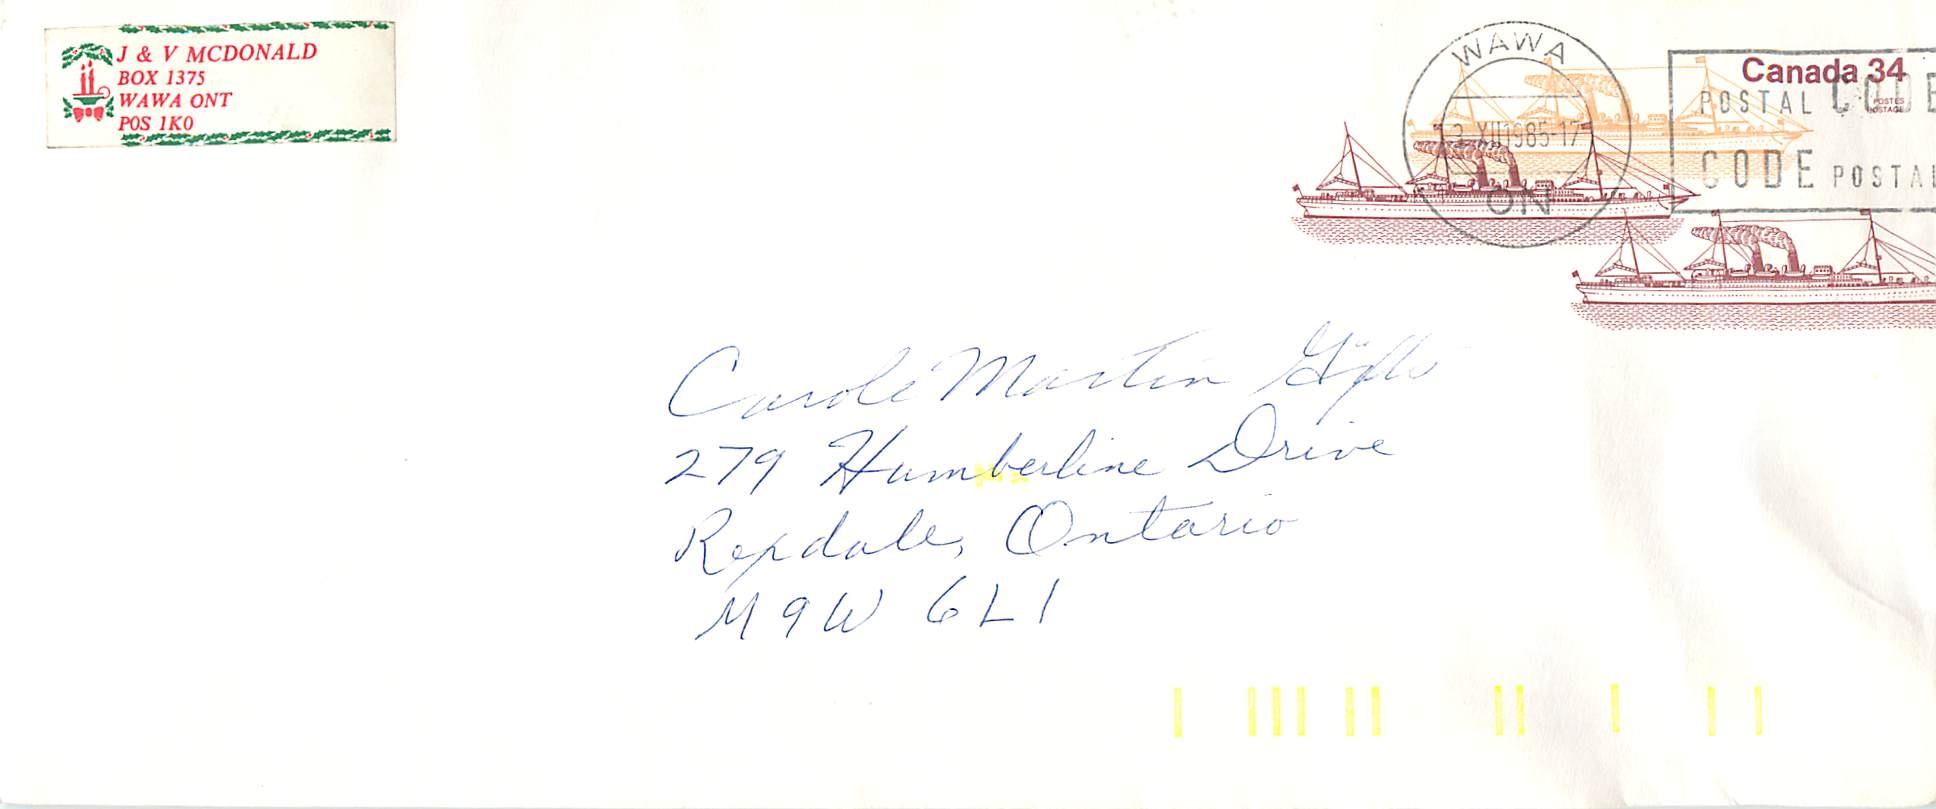 J & V MCDONALD
BOX 1375
WAWA ONT
POS 1K0
WAWA
XII1985-17
ON
Canada 34
POSTES
POSTAGE
POSTAL CODE
CODE POSTAL
Carole Martin Gifts
279 Humberline Drive
Rexdale, Ontario
M9W 6L1